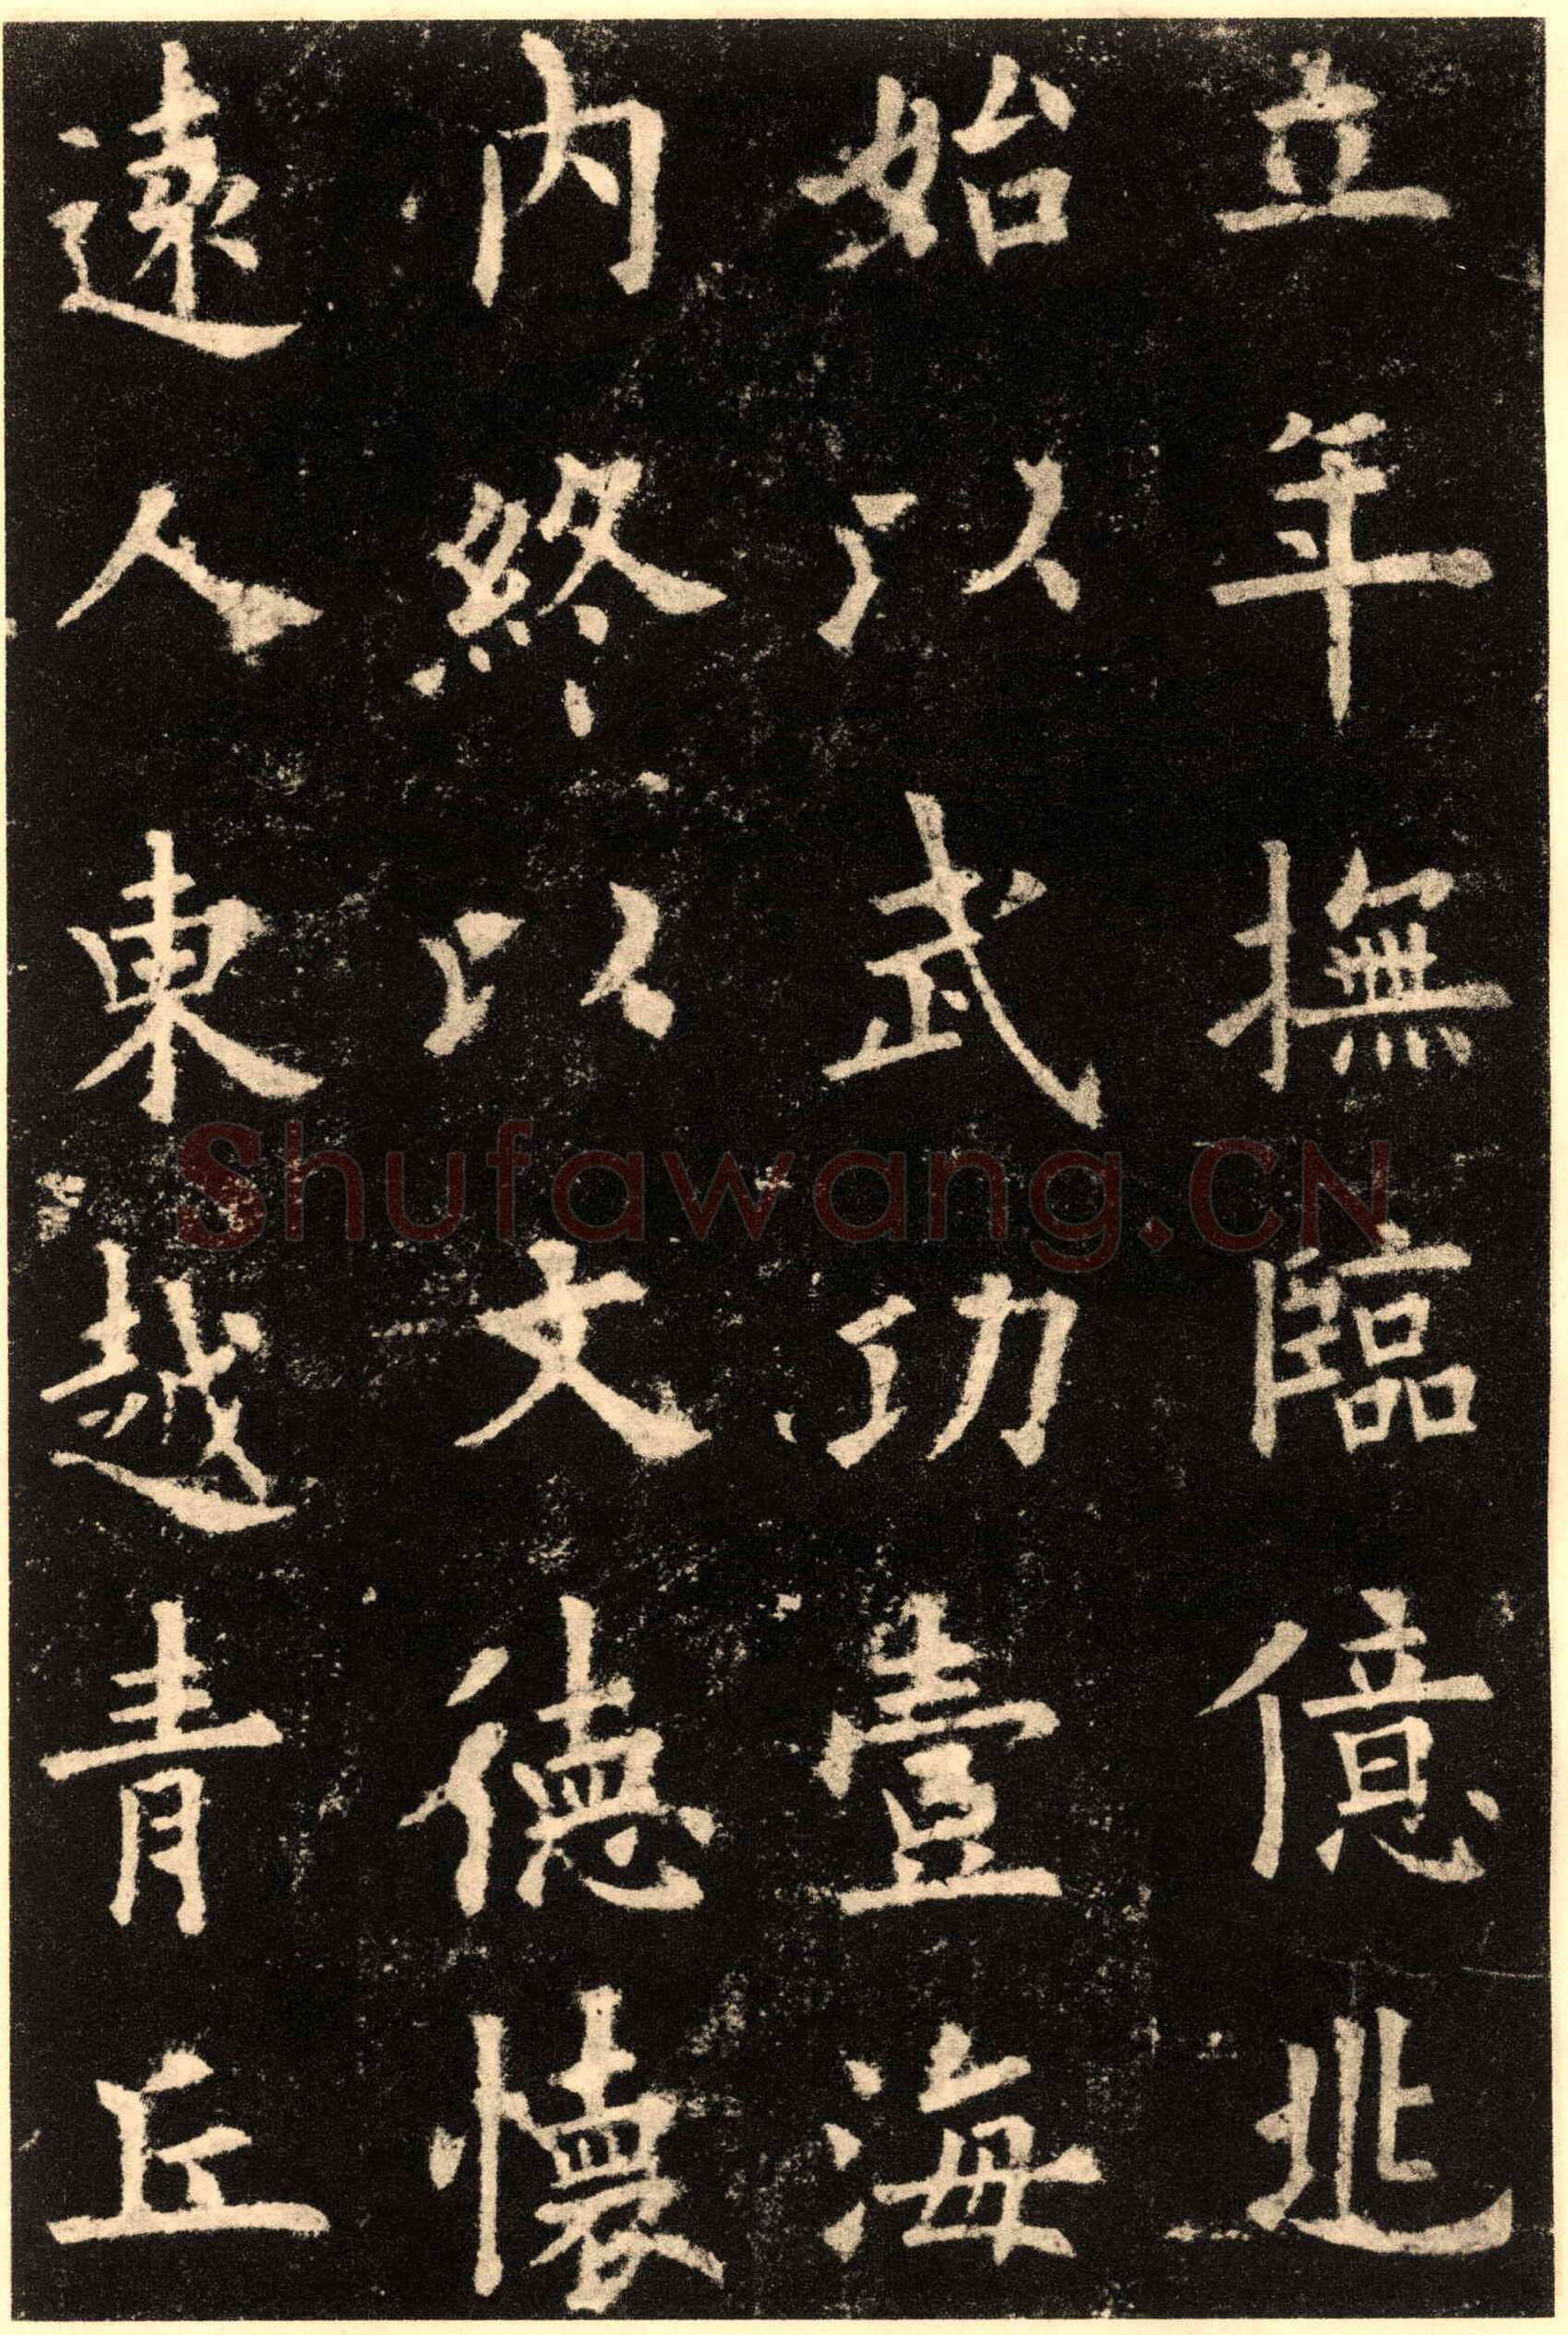 立年撫臨億兆
始以武功壹海
内終以文德懷
遠人東越青丘
Shufawang.CN